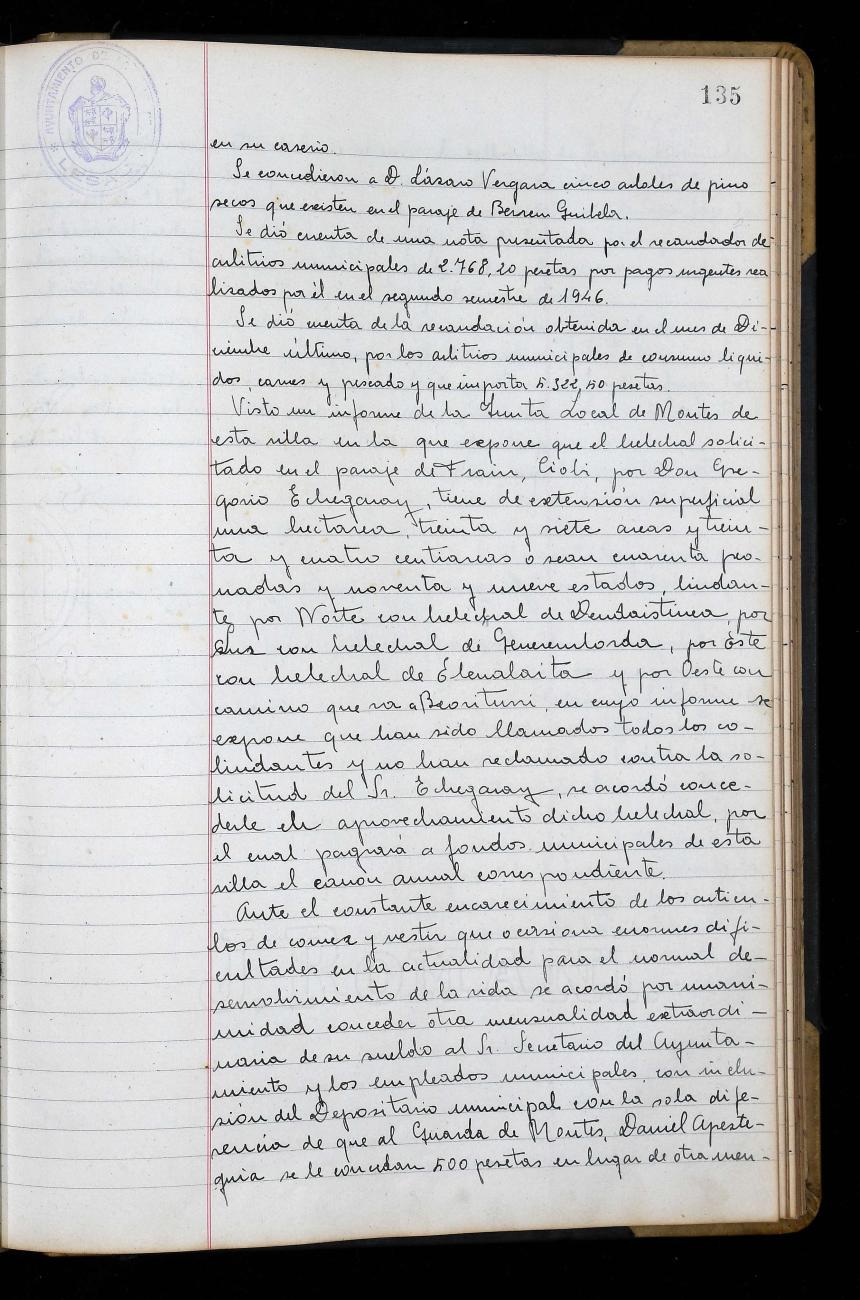 135
AYUNTAMIENTO DE
LESACA
en su caserio.
Se concedieron a D. Lázaro Vergara cinco arboles de pino
secos que existen en el paraje de Berrem Guibela.
Se dió cuenta de una nota presentada por el recaudador de
arbitrios municipales de 2.768,20 pesetas por pagos urgentes rea
lizados por él en el segundo semestre de 1946.
Se dió cuenta de la recaudación obtenida en el mes de Di-
ciembre último, por los arbitrios municipales de consumo liqui-
dos, carnes y pescado y que importa 5.322,50 pesetas.
Visto un informe de la Junta Local de Montes de
esta villa en la que expone que el helechal solici-
tado en el paraje de Frain, Cioli, por Don Gre-
gorio Echegaray, tiene de extensión superficial
una hectarea, treinta y siete areas y trein-
ta y cuatro centiareas o sean cuarenta peo-
nadas y noventa y nueve estados, lindan-
te por Norte con helechal de Dendaistinea, por
Sur con helechal de Generemborda, por Este
con helechal de Elenalaita y por Oeste con
camino que va a Beoriturri, en cuyo informe se
expone que han sido llamados todos los co-
lindantes y no han reclamado contra la so-
licitud del Sr. Echegaray, se acordó conce-
derle en aprovechamiento dicho helechal, por
el cual pagará a fondos municipales de esta
villa el canon anual correspondiente.
Ante el constante encarecimiento de los articu-
los de comer y vestir que ocasiona enormes difi-
cultades en la actualidad para el normal de-
senvolvimiento de la vida se acordó por unani-
midad conceder otra mensualidad extraordi-
naria de su sueldo al Sr. Secretario del Ayunta-
miento y los empleados municipales, con inclu-
sión del Depositario municipal con la sola dife-
rencia de que al Guarda de Montes, Daniel Apeste-
guia se le concedan 500 pesetas en lugar de otra men-